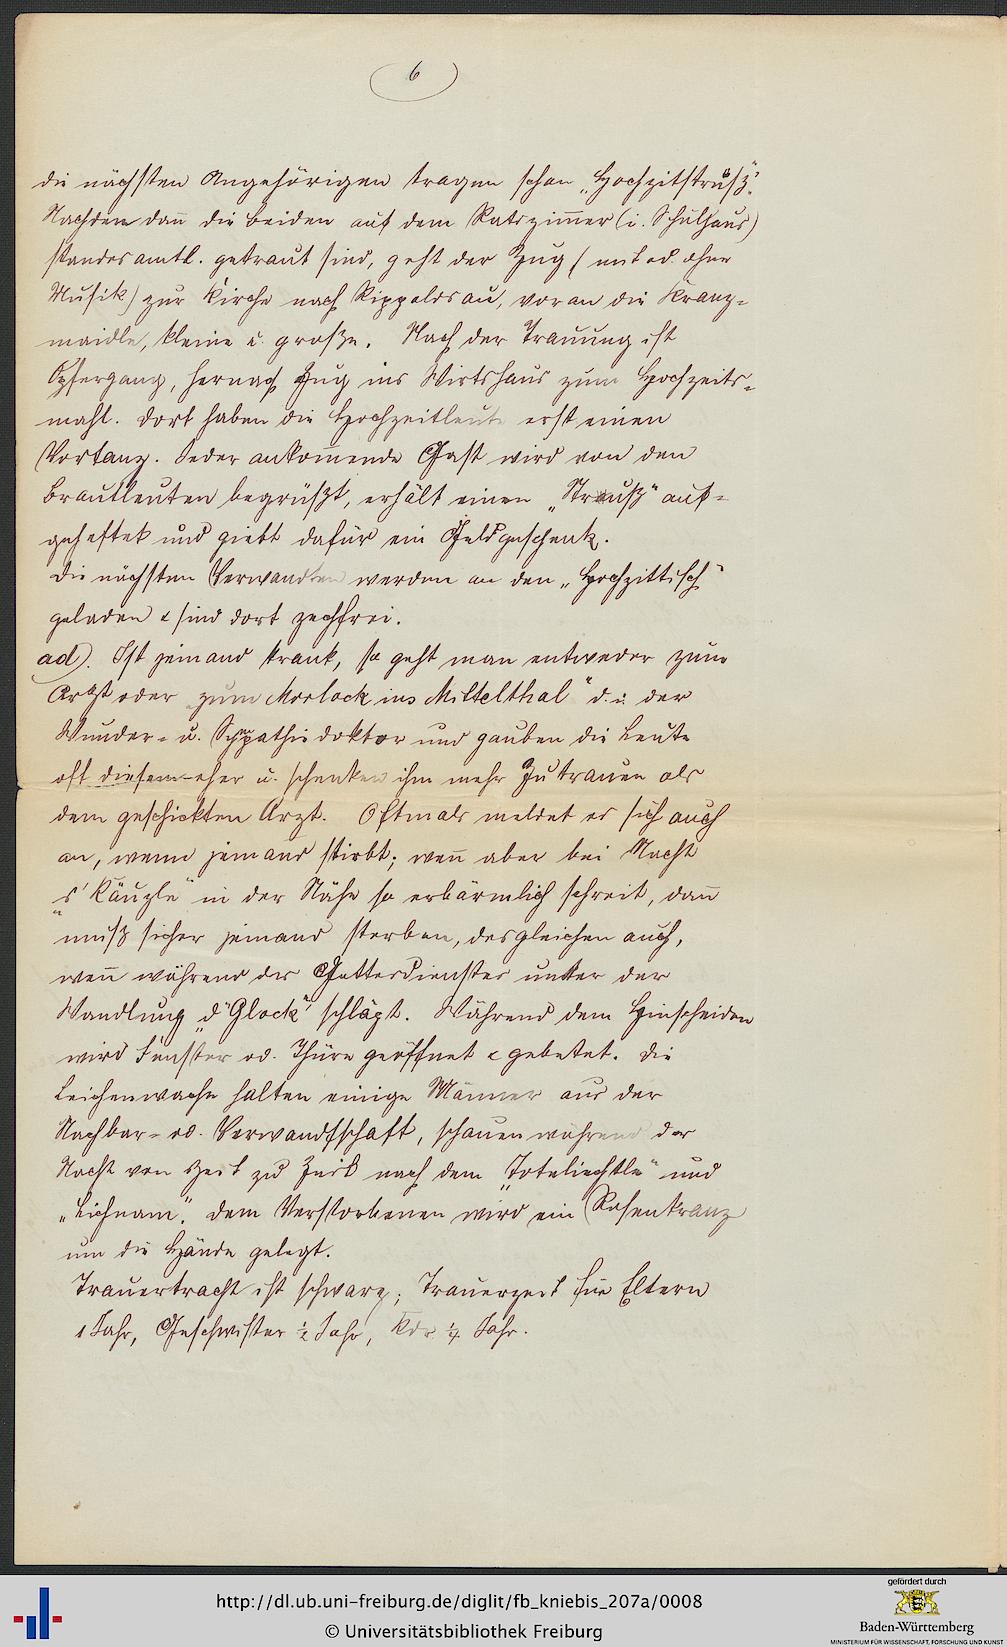 6
die nächsten Angehörigen tragen schon „Hochzitstrüß“.
Nachdem dan̄ die beiden auf dem Ratszim̄er (i. Schulhaus)
standesamtl. getraut sind, geht der Zug (mit od. ohne
Musik) zur Kirche nach Rippoldsau, voran die Kranz-
maidle, kleine u. große. Nach der Trauung ist
Opfergang, hernach Zug ins Wirtshaus zum Hochzeits-
mahl. Dort haben die Hochzeitleute erst einen
Vortanz. Jeder ankom̄ende Gast wird von den
Brautleuten begrüßt, erhält einen „Strauß“ auf-
geheftet und giebt dafür ein Geldgeschenk.
Die nächsten Verwandten werden an den „Hochzittisch“
geladen & sind dort zechfrei.
ad). Ist jemand krank, so geht man entweder zum
Arzt oder „zum Morlock ins Mittelthal“ d. i. der
Wunder- u. Sympathiedoktor und glauben die Leute
oft diesem eher u. schenken ihm mehr Zutrauen als
dem geschickten Arzt. Oftmals meldet es sich auch
an, wenn jemand stirbt; wen̄ aber bei Nacht
„s' Käuzle“ in der Nähe so erbärmlich schreit, dan̄
muß sicher jemand sterben, desgleichen auch,
wen̄ während des Gottesdienstes unter der
Wandlung „d' Glock“ schlägt. Während dem Hinscheiden
wird Fenster od. Thüre geöffnet & gebetet. Die
Leichenwache halten einige Männer aus der
Nachbar- od. Verwandtschaft, schauen während der
Nacht von Zeit zu Zeit nach dem „Toteliechtle“ und
„Lichnam“. Dem Verstorbenen wird ein Rosenkranz
um die Hände gelegt.
Trauertracht ist schwarz; Trauerzeit für Eltern
1 Jahr, Geschwister ½ Jahr, Kdr ¼ Jahr.
http://dl.ub.uni-freiburg.de/diglit/fb_kniebis_207a/0008
© Universitätsbibliothek Freiburg
gefördert durch
Baden-Württemberg
MINISTERIUM FÜR WISSENSCHAFT, FORSCHUNG UND KUNST